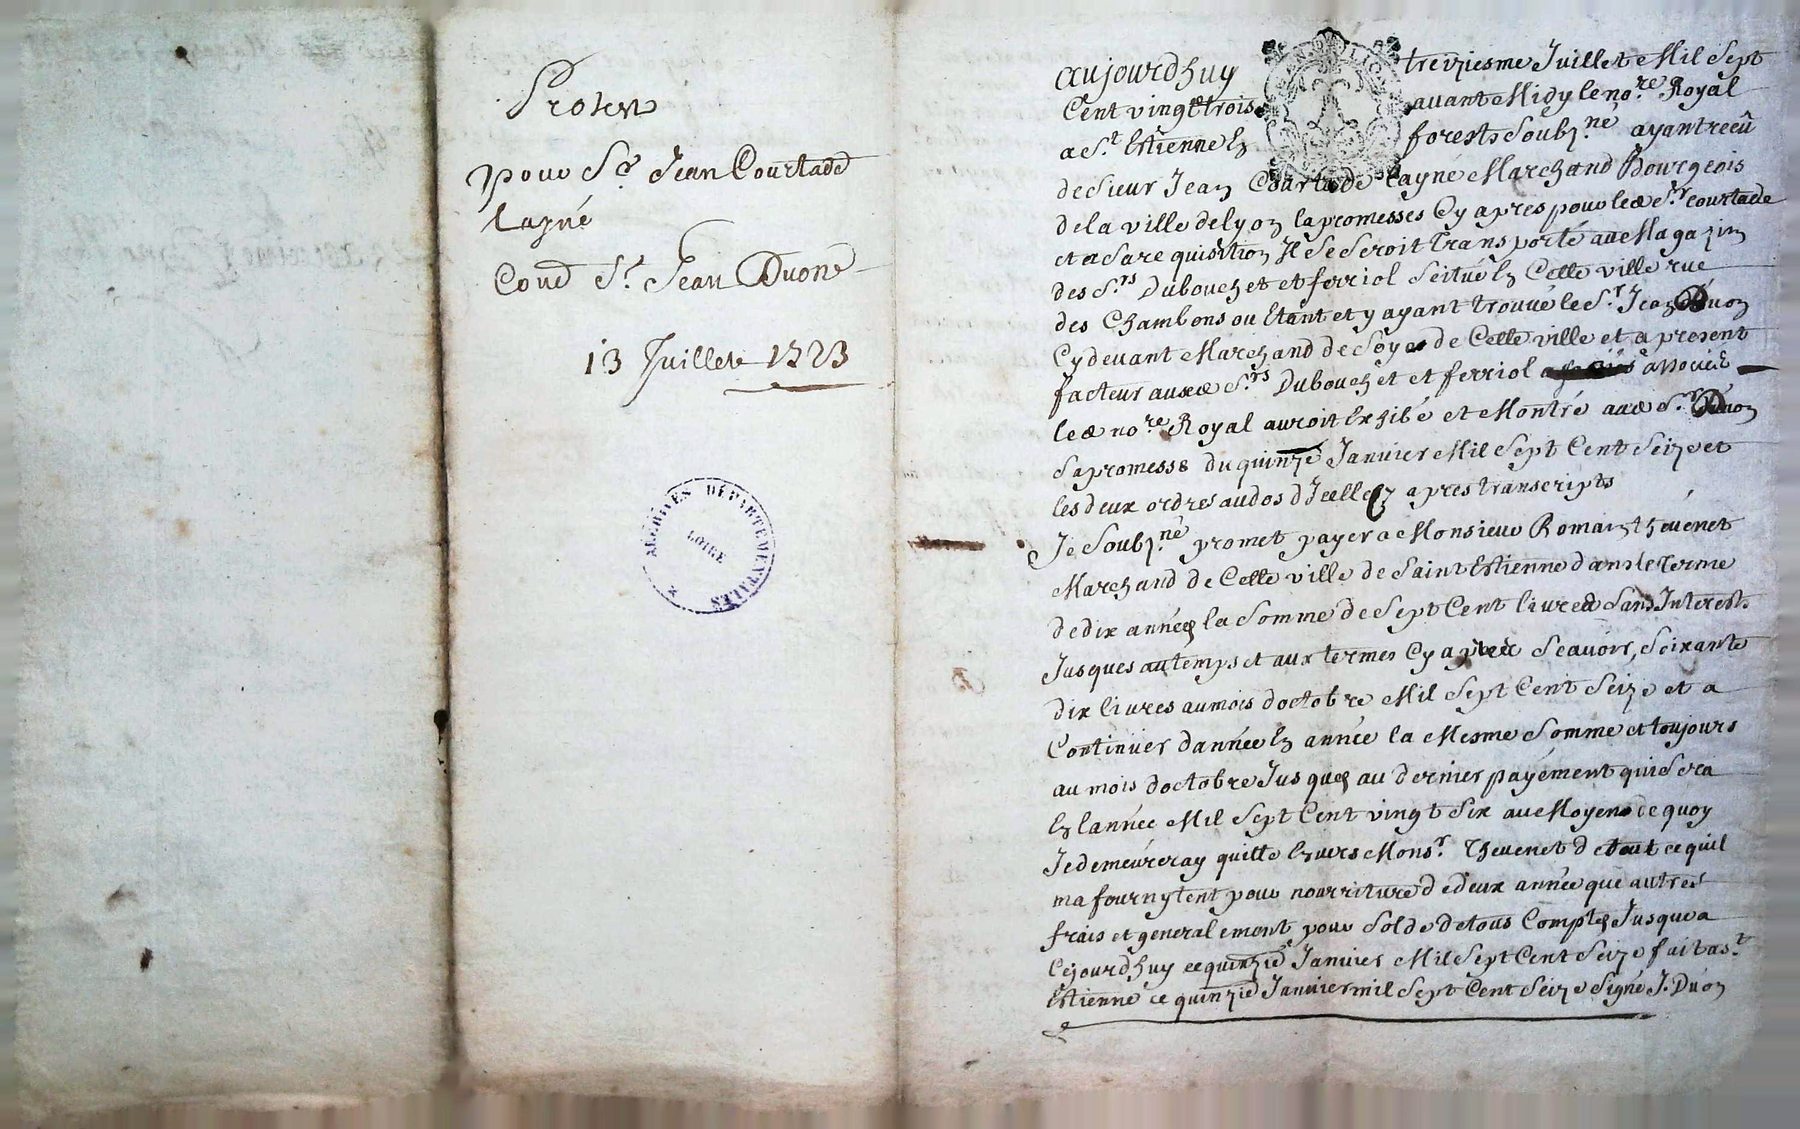 Protest
pour Sr Jean Courtade
layné
Cond Sr. Jean Duon
13 Juillet 1723
ARCHIVES DÉPARTEMENTALES
LOIRE
aujourdhuy treziesme Juillet Mil Sept
Cent vingt trois avant Midy le nore. Royal
a St. Estienne En forests Soubzné ayant receû
de Sieur Jean Courtade layné Marchand Bourgeois
de la ville de lyon la promesses Cy apres pour led Sr. Courtade
et a Sa requisition Il Se Seroit Transporté au Magazin
des Srs. Dubouchet et ferriol Seitué En Cette ville rue
des Chambons ou Etant et y ayant trouvé le Sr. Jean Duon
Cy devant Marchand de Soye de Cette ville et a present
facteur ausd Srs. Dubouchet et ferriol associés
led nore. Royal auroit Exhibé et Montré aud Sr. Duon
Sa promesse du quinze Janvier Mil Sept Cent Seize et
les deux ordres au dos d'Icelle Cy apres transcripts
Je Soubzné promet payer a Monsieur Romain thevenet
Marchand de Cette ville de Saint Estienne dans le Terme
de dix années la Somme de Sept Cent livres Sans Interests
Jusques au temps et aux termes Cy apres Scavoir, Soixante
dix livres au mois doctobre Mil Sept Cent Seize et a
Continuer dannée En année la Mesme Somme et toujours
au mois doctobre Jusques au dernier payement qui Sera
En lannée Mil Sept Cent vingt Six au Moyen de quoy
Je demeureray quitte Envers Monsr. Thevenet de tout ce quil
ma fourny tent pour nourriture de deux année que autres
frais et generalement pour Solde de tous Comptes Jusqu a
Cejourdhuy ce quinzie Janvier Mil Sept Cent Seize fait a St.
Estienne ce quinzie Janvier mil Sept Cent Seize Signé J. Duon